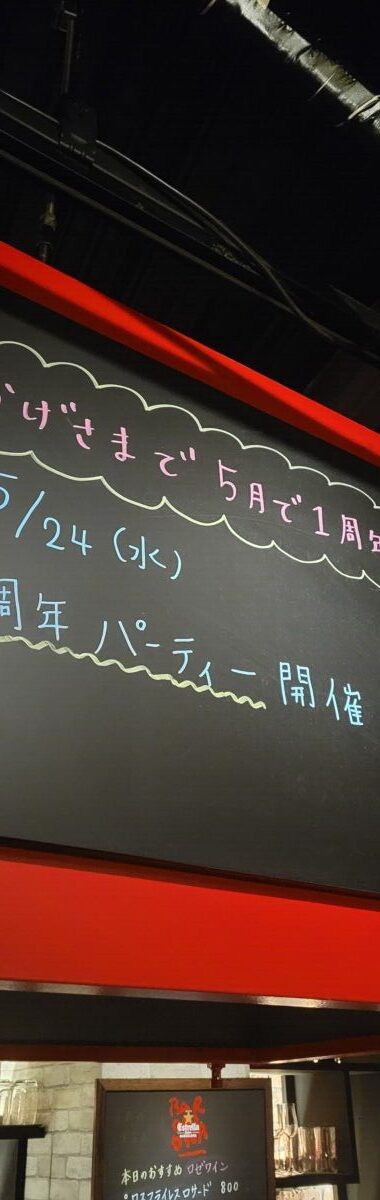 かげさまで 5月で1周年
5/24(水)
周年 パーティー 開催
BAR
Estrella
本日のおすすめ ロゼワイン